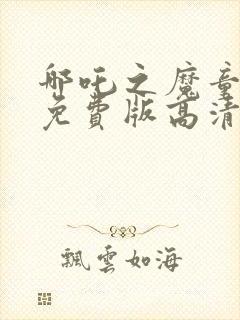 哪吒之魔童
免費版高清
飄雲如海